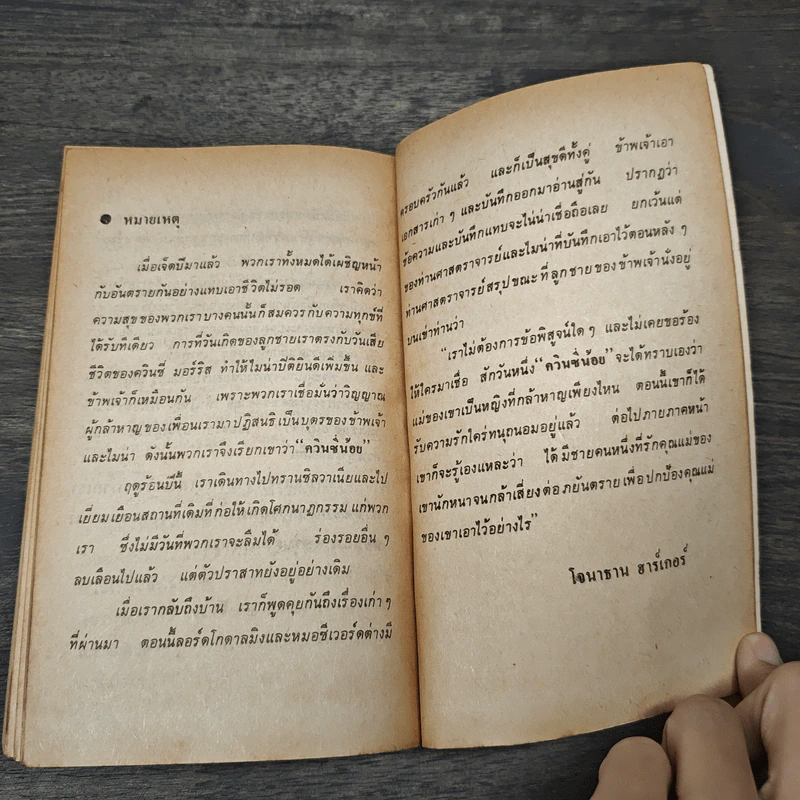 ● หมายเหตุ
เมื่อเจ็ดปีมาแล้ว พวกเราทั้งหมดได้เผชิญหน้า
กับอันตรายกันอย่างแทบเอาชีวิตไม่รอด เราคิดว่า
ความสุขของพวกเราบางคนนั้นก็สมควรกับความทุกข์ที่
ได้รับทีเดียว การที่วันเกิดของลูกชายเราตรงกับวันเสีย
ชีวิตของควินซี่ มอร์ริส ทำให้ไมน่าปิติยินดีเพิ่มขึ้น และ
ข้าพเจ้าก็เหมือนกัน เพราะพวกเราเชื่อมั่นว่าวิญญาณ
ผู้กล้าหาญของเพื่อนเรามาปฏิสนธิเป็นบุตรของข้าพเจ้า
และไมน่า ดังนั้นพวกเราจึงเรียกเขาว่า “ควินซี่น้อย”
ฤดูร้อนปีนี้ เราเดินทางไปทรานซิลวาเนียและไป
เยี่ยมเยือนสถานที่เดิมที่ก่อให้เกิดโศกนาฏกรรม แก่พวก
เรา ซึ่งไม่มีวันที่พวกเราจะลืมได้ ร่องรอยอื่น ๆ
ลบเลือนไปแล้ว แต่ตัวปราสาทยังอยู่อย่างเดิม
เมื่อเรากลับถึงบ้าน เราก็พูดคุยกันถึงเรื่องเก่า ๆ
ที่ผ่านมา ตอนนี้ลอร์ดโกดาลมิงและหมอซีเวอร์ดต่างมี
ครอบครัวกันแล้ว และก็เป็นสุขดีทั้งคู่ ข้าพเจ้าเอา
เอกสารเก่า ๆ และบันทึกออกมาอ่านสู่กัน ปรากฏว่า
ข้อความและบันทึกแทบจะไม่น่าเชื่อถือเลย ยกเว้นแต่
ของท่านศาสตราจารย์และไมน่าที่บันทึกเอาไว้ตอนหลัง ๆ
ท่านศาสตราจารย์สรุปขณะที่ลูกชายของข้าพเจ้านั่งอยู่
บนเข่าท่านว่า
“เราไม่ต้องการข้อพิสูจน์ใด ๆ และไม่เคยขอร้อง
ให้ใครมาเชื่อ สักวันหนึ่ง “ควินซี่น้อย” จะได้ทราบเองว่า
แม่ของเขาเป็นหญิงที่กล้าหาญเพียงไหน ตอนนี้เขาก็ได้
รับความรักใคร่ทนุถนอมอยู่แล้ว ต่อไปภายภาคหน้า
เขาก็จะรู้เองแหละว่า ได้มีชายคนหนึ่งที่รักคุณแม่ของ
เขานักหนาจนกล้าเสี่ยงต่อภยันตรายเพื่อปกป้องคุณแม่
ของเขาเอาไว้อย่างไร”
โจนาธาน ฮาร์เกอร์